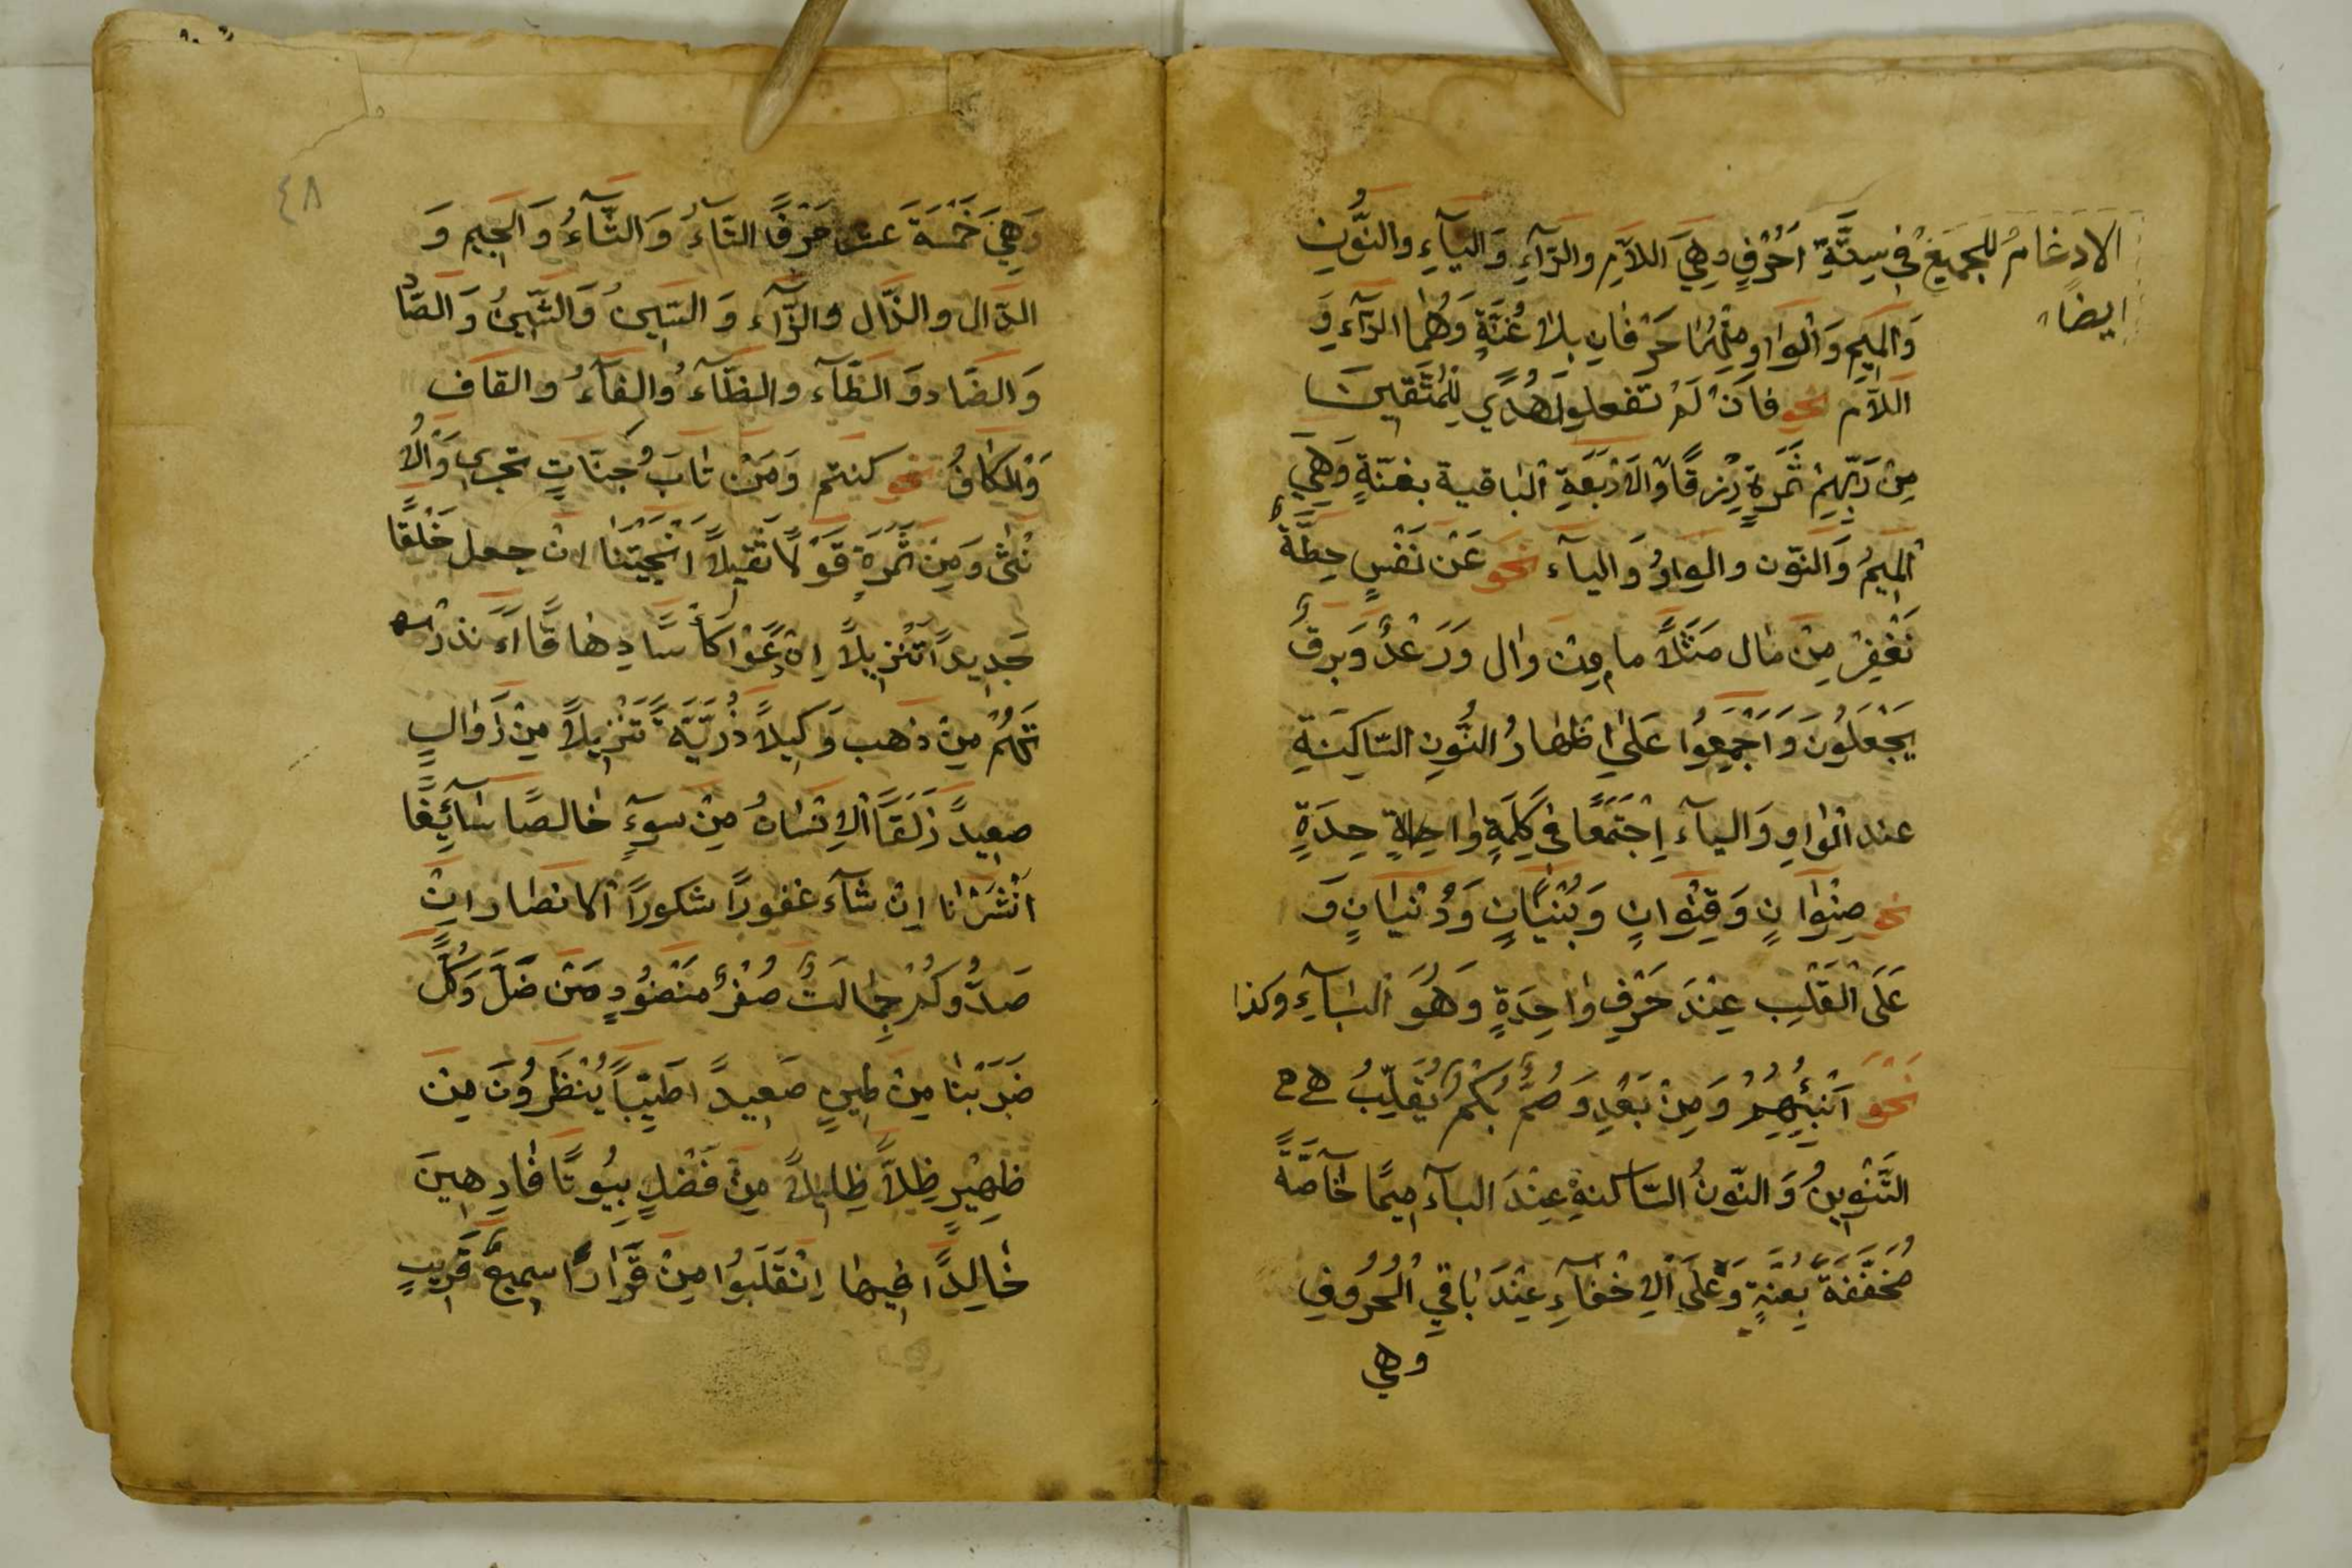 الادغام للجميع في ستّة احرف وهي اللام والرّآء واليآء والنّون
ايضا
والميم والواو منها حرفان بلا غنّة وهما الرّآء و
اللّام نحو فان لم تفعلوا هدًى للمتّقين
من ربّهم ثمرة رزقًا والاربعة الباقية بغنّة وهي
الميم والنّون والواو واليآء نحو عن نفس حطّة
نغفر من مال مثلًا ما من وال ورعد وبرق
يجعلون واجمعوا على اظهار النّون السّاكنة
عند الواو واليآء اجتمعا في كلمة واحدة
نحو صنوان وقنوان وبنيان ودنيان و
على القلب عند حرف واحدة وهو البآء وكذا
نحو انبئهم ومن بعد وصمّ بكم يقلّب
التّنوين والنّون السّاكنة عند البآء ميمًا خآصّة
مخفّفة بغنّة وعلى الاخفآء عند باقي الحروف
وهي
٤٨
وهي خمسة عشر حرفًا التآء والثّآء والجيم و
الدّال والذّال والزّآء والسّين والشّين والصّاد
والضّاد والطّآء والظّآء والفآء والقاف
والكاف نحو كنتم ومن تاب جنّات تجري والا
نثى ومن ثمرة قولًا ثقيلًا انجيتنا ان جعل خلقًا
جديدًا تنزيلًا ان دعوا كأسًا دهاقًا أنذر
تهم من ذهب وكيلًا ذرّيّة تنزيلًا من زوال
صعيدً زلقًا الانسان من سوء خالصًا سآئغًا
انشرنا ان شآء غفورًا شكورًا الانصار ان
صدّوكم جمالت صفر منضود من ضلّ وكلّ
ضربنا من طين صعيدًا طيّبًا ينظرون من
ظهير ظلّاً ظليلًا من فضل بيوتًا فارهين
خالدًا فيها انقلبوا من قرارًا سميع قريب